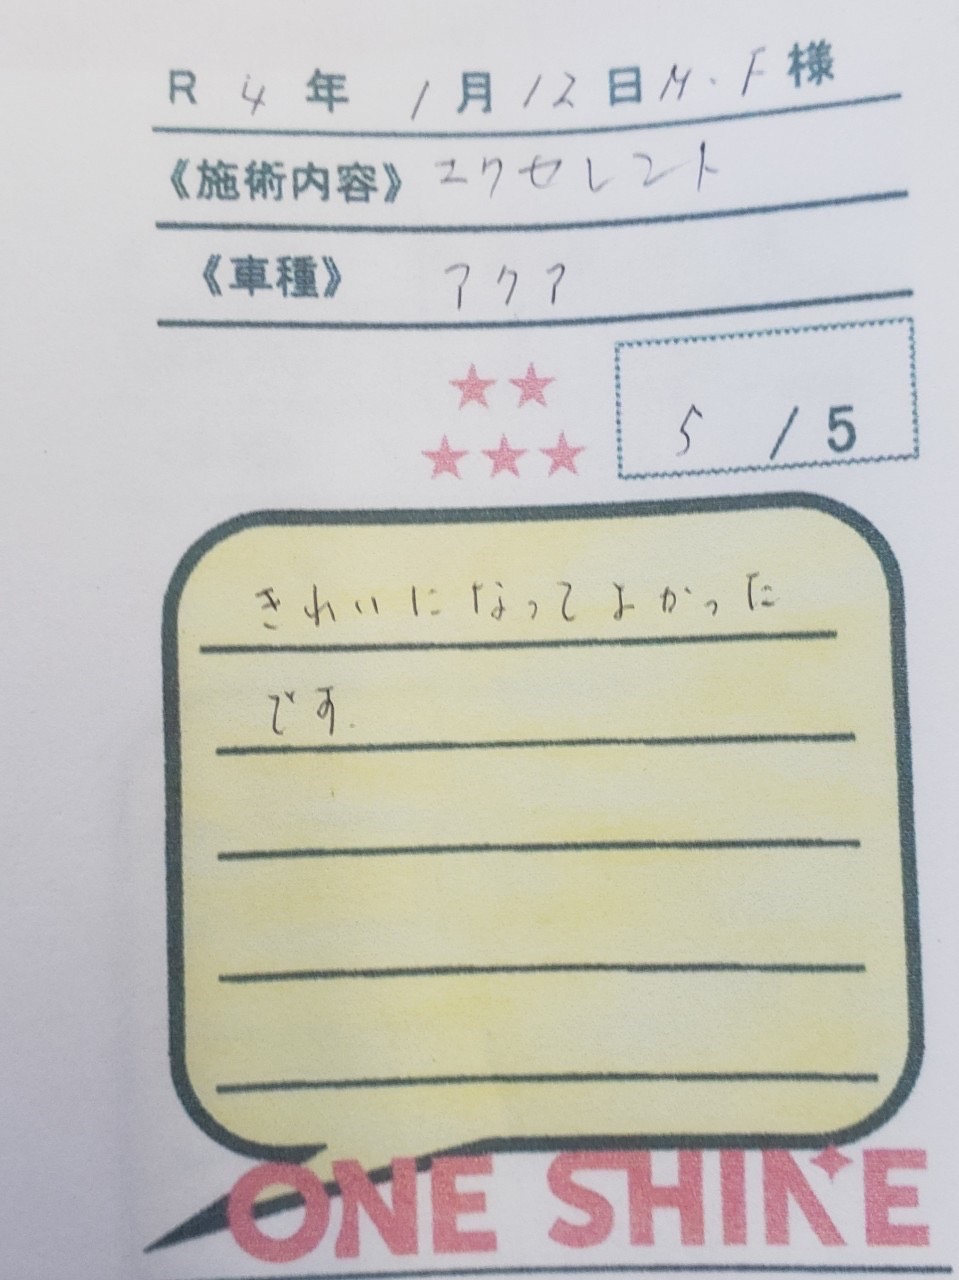 R 4 年 1 月 12 日 M.F 様
《施術内容》 エクセレント
《車種》 アクア
5 / 5
きれいになってよかった
です.
ONE SHINE